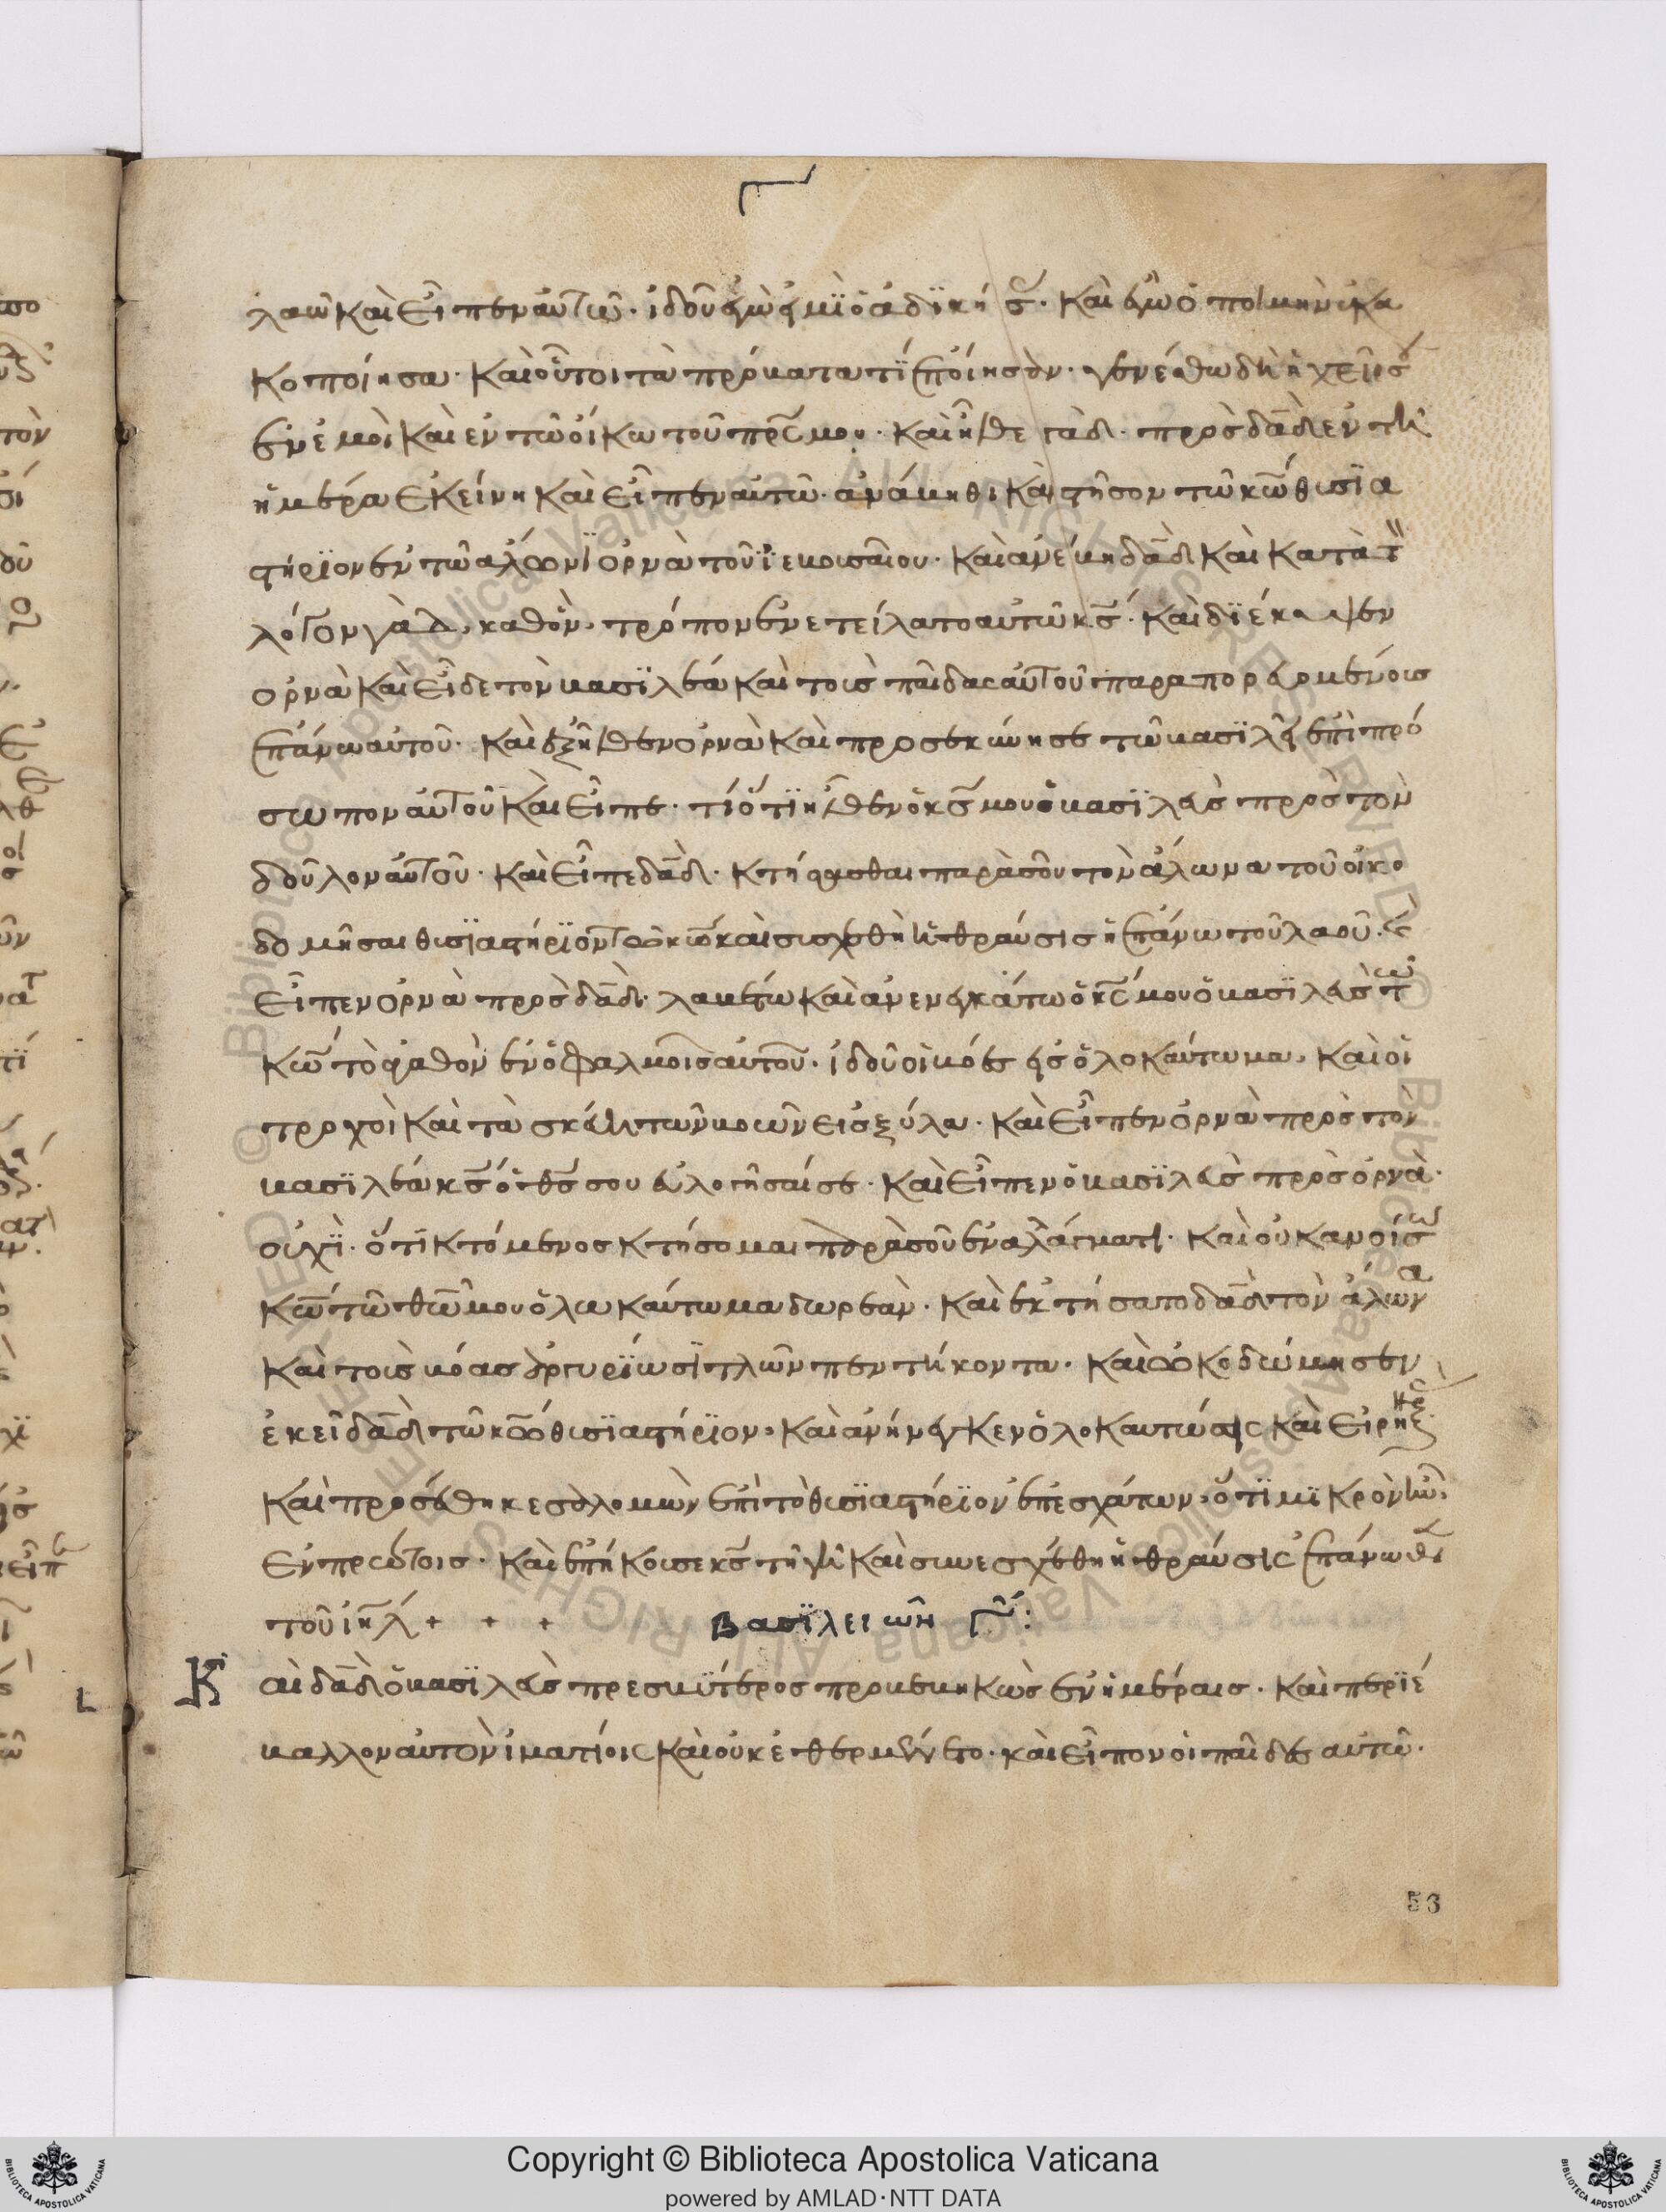 λαῶ καὶ εἶπεν αὐτῶ· ἰδοῦ ἐγὼ εἰμϊ ὁ ἀδϊκήσ(ας)· καὶ ἐγὼ ὁ ποιμὴν ἐκα
κοποίησα· καὶ οὗτοι τὰ πρόβατα τί ἐποίησὰν· γενέσθω δὴ ἡ χεῖρ σ(ου)
ἐν ἐμοὶ καὶ εν τῶ οἴκω τοῦ πρ̅ς μου· καὶ ἦλθε γὰδ· πρὸς δα̅δ εν τῆ
ἡμέρα εκείνη καὶ εἶπεν αὐτῶ· ἀνάβηθι καὶ στῆσον τῶ κ̅ω θυσϊα
στήρϊον ἐν τῶ αλωνϊ ὀρνὰ τοῦ ϊεβουσαίου· καὶ ἀνέβη δα̅δ καὶ κατὰ τ(ὸν)
λόγον γὰδ, καθὸν τρόπον ἐνετείλατο αὐτῶ κ̅ς· καὶ δϊέκυψεν
ορνὰ καὶ εἶδε τὸν βασϊλέα καὶ τοὺς παῖδας αὐτοῦ παραπορευομένους
ἐπάνω αὐτοῦ· καὶ ἐξῆλθεν ορνὰ καὶ προσεκύνησε τῶ βασϊλεῖ ἐπὶ πρό
σωπον αὐτοῦ καὶ εἶπε· τί ὅτϊ ἦλθεν ὁ κ̅ς μου ὁ βασϊλεὺς πρὸς τὸν
δοῦλον αὐτοῦ· καὶ εἶπε δα̅δ· κτήσασθαι παρὰ σοῦ τὸν ἅλωνα τοῦ οἰκο
δομῆσαι θυσϊαστήρϊον τῶ κ̅ω καὶ συσχεθῆ ἡ θραύσις ἡ ἐπάνω τοῦ λαοῦ· κ(αὶ)
εἶπεν ορνὰ πρὸς δα̅δ· λαβέτω καὶ ἀνενεγκάτω ὁ κ̅ς μου ὁ βασϊλεὺς τῶ
κ̅ω τὸ ἀγαθὸν ἐν ὀφθαλμοῖς αὐτοῦ· ἰδοῦ οἱ βόες εἰς ὁλοκαύτωμα, καὶ οἱ
τροχοὶ καὶ τὰ σκεύη τῶν βοῶν εις ξύλα· καὶ εἶπεν ορνὰ πρὸς τὸν
βασϊλέα κ̅ς ὁ θ̅ς σου εὐλογήσαι σε· καὶ εἶπεν ὁ βασϊλεὺς πρὸς ὀρνὰ·
οὐχϊ· ὅτϊ κτόμενος κτήσομαι παρὰ σοῦ ἐν αλλάγματι· καὶ οὐκ ανοίσω
κ̅ω τῶ θ̅ω μου ὅλωκαύτωμα δωρεάν· καὶ ἐκτήσατο δα̅δ τὸν ἅλωνα
καὶ τοὺς βόας ἀργυρίω σϊτλῶν πεντήκοντα· καὶ ωκοδώμησεν
ἐκεῖ δα̅δ τῶ κ̅ω θυσϊαστήρϊον, καὶ ἀνήνεγκεν ὁλοκαυτώσις καὶ εἰρηνικ(ὰς)
καὶ προσέθηκε σολομὼν ἐπὶ τὸ θυσϊαστήρϊον ἐπ εσχάτων, ὅτϊ μϊκρὸν ἦν
ἐν πρώτοις· καὶ ἐπήκουσε κ̅ς τῆ γῆ καὶ συνεσχέθη ἡ θραύσις ἐπάνωθεν
τοῦ ι̅η̅λ + + + Βασϊλειῶν γ̅:
Καὶ δα̅δ ὁ βασϊλεὺς πρεσβύτερος προβεβηκὼς ἐν ἡμέραις· καὶ περϊέ
βαλλον αὐτὸν ἱματίοις καὶ οὐκ ἐθερμένετο· καὶ εἶπον οἱ παῖδες αὐτῶ·
53
Copyright © Biblioteca Apostolica Vaticana
powered by AMLAD·NTT DATA